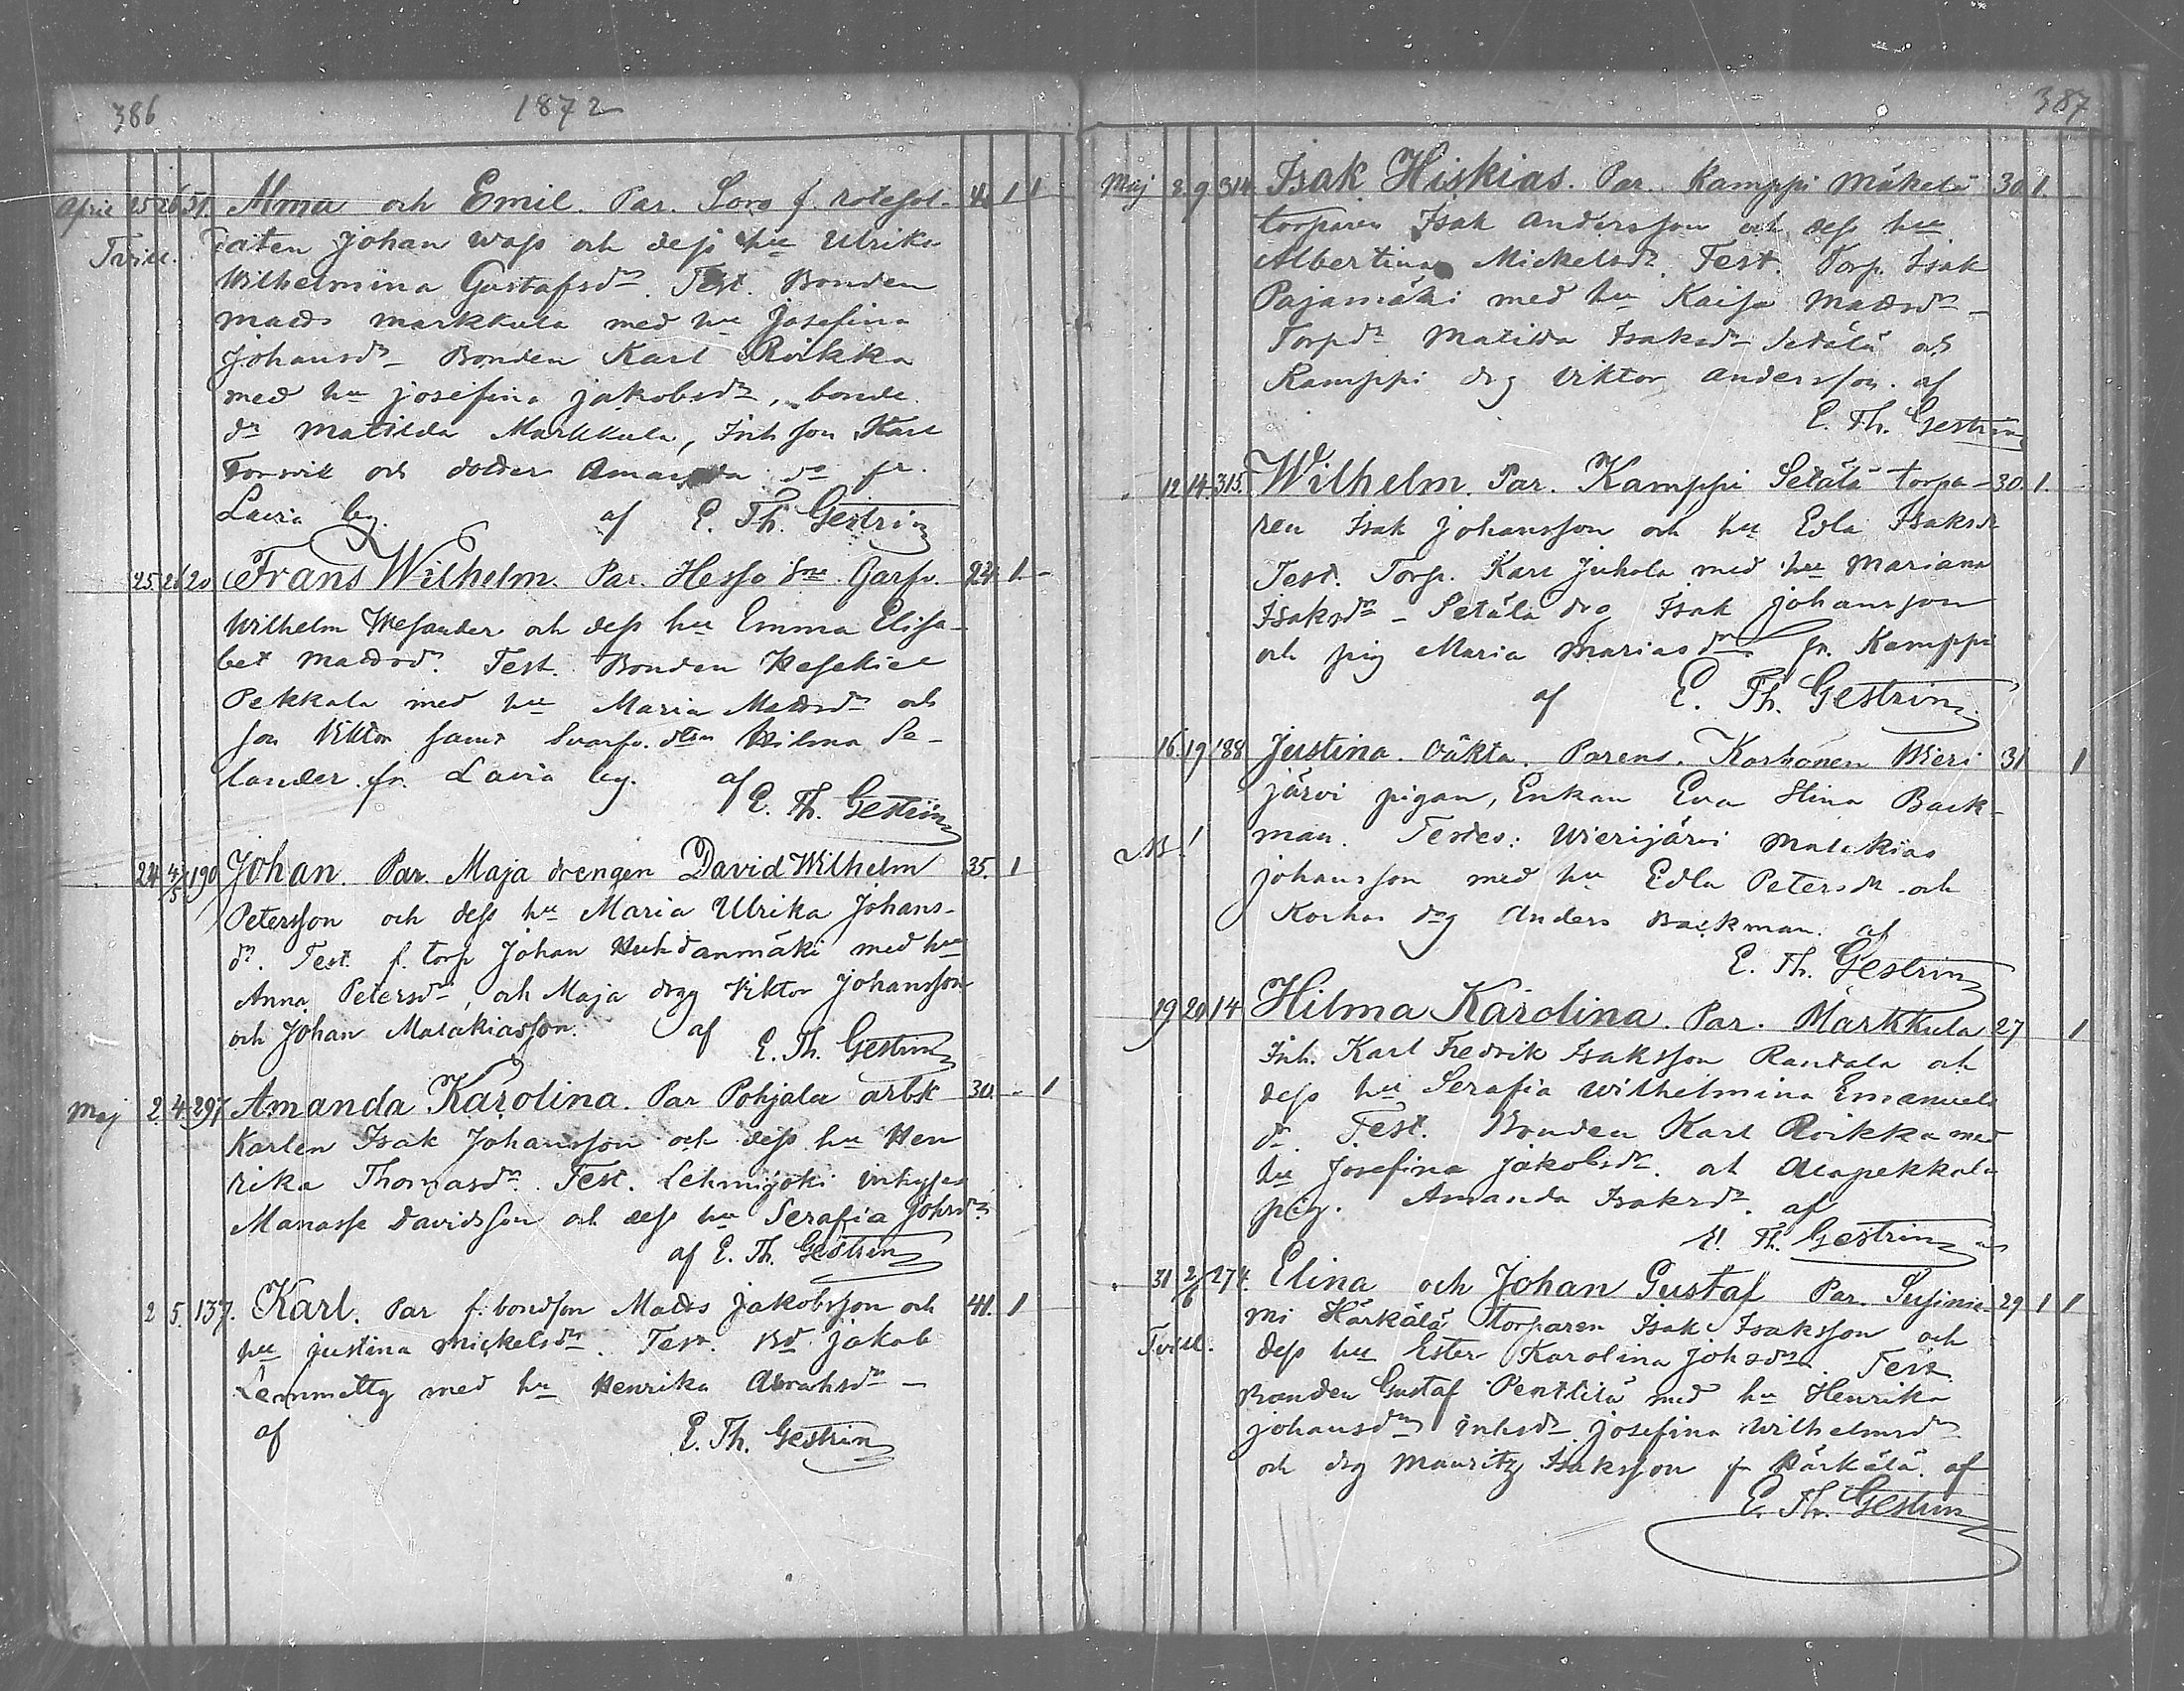 386
1872
April 25 26 51. Alma och Emil. Par. Soro f. rotesol- 41 1 1
Tvill. daten Johan Wass och dess hu Ulrika
Wilhelmina Gustafsdr. Test. Bonden
Matts Markkula med hu Josefina
Johansdr Bonden Karl Roikka
med hu Josefina Jakobsdr, bonde
dr Matilda Markkula, Inh son Karl
Forsvik och dotter Amanda dr fr.
Lavia by. af E. Th. Gestrin
25 26 20 Frans Wilhelm. Par. Hesso Garfv. 24 1 -
Wilhelm Wesander och dess hu Emma Elisa-
bet Mattsdr. Test. Bonden Hesekiel
Pekkala med hu Maria Mattsdr och
son Viktor samt Svarfv. dtrn Hilma Se-
lander fr. Lavia by. af
E. Th. Gestrin
24 4/5 190 Johan. Par. Maja drengen David Wilhelm 35. 1
Petersson och dess hu Maria Ulrika Johans-
dr. Test. f. torp Johan Huhdanmäki med hu
Anna Petersdr, och Maja drgg Viktor Johansson
och Johan Malakiasson. af
E. Th. Gestrin
Maj 2. 4. 297 Amanda Karolina. Par Pohjala arbt 30. - 1
Karlen Isak Johansson och dess hu Hen
rika Thomasdr. Test. Lehmijoki inhyses
Manasse Davidsson och dess hu Serafia Johsdr
af E. Th. Gestrin
2 5. 137. Karl. Par f. bondson Matts Jakobsson och 41. 1
hu Justina Mickelsdr. Test. Bd Jakob
Lemmetty med hu Henrika Abrahsdr -
af E. Th. Gestrin
387
Maj 8. 9 314 Isak Hiskias. Par. Kamppi Mäkelä 30. 1.
torparen Isak Andersson och dess hu
Albertina Mickelsdr. Test. Torp. Isak
Pajamäki med hu Kaisa Mattsdr -
Torpdr Matilda Isaksdr Setälä och
Kamppi drg Viktor Andersson. af
E. Th. Gestrin
12 14 315. Wilhelm. Par. Kamppi Setälä torpa- 30. 1.
ren Isak Johansson och hu Edla Isaksdr
Test. Torp. Karl Juhola med hu Mariana
Isaksdr - Setälä drg Isak Johansson
och pig Maria Mariasdr fr. Kamppi
af E. Th. Gestrin
16 19 188 Justina. Oäkta. Parens. Korhonen Wieri 31 1
järvi pigan, Enkan Eva Stina Back-
NB! man. Testes: Wierijärvi Malekias
Johansson med hu Edla Petersdr och
Korho drg Anders Backman. af
E. Th. Gestrin
19 20 14 Hilma Karolina. Par. Markkula 27 1
Inh. Karl Fredrik Isaksson Randala och
dess hu Serafia Wilhelmina Emanuels
dr Test. Bonden Karl Roikka med
hu Josefina Jakobsdr. och Alapekkala
pig. Amanda Isaksdr. af
E. Th. Gestrin
31 2/6 274. Elina och Johan Gustaf Par. Susinie- 29 1 1
mi Härkälä torparen Isak Isaksson och
Tvill. dess hu Ester Karolina Johsdr. Test.
Bonden Gustaf Penttilä med hu Henrika
Johansdr inhsdr Josefina Wilhelmsdr
och drg Mauritz Isaksson fr Härkälä. af
E. Th. Gestrin